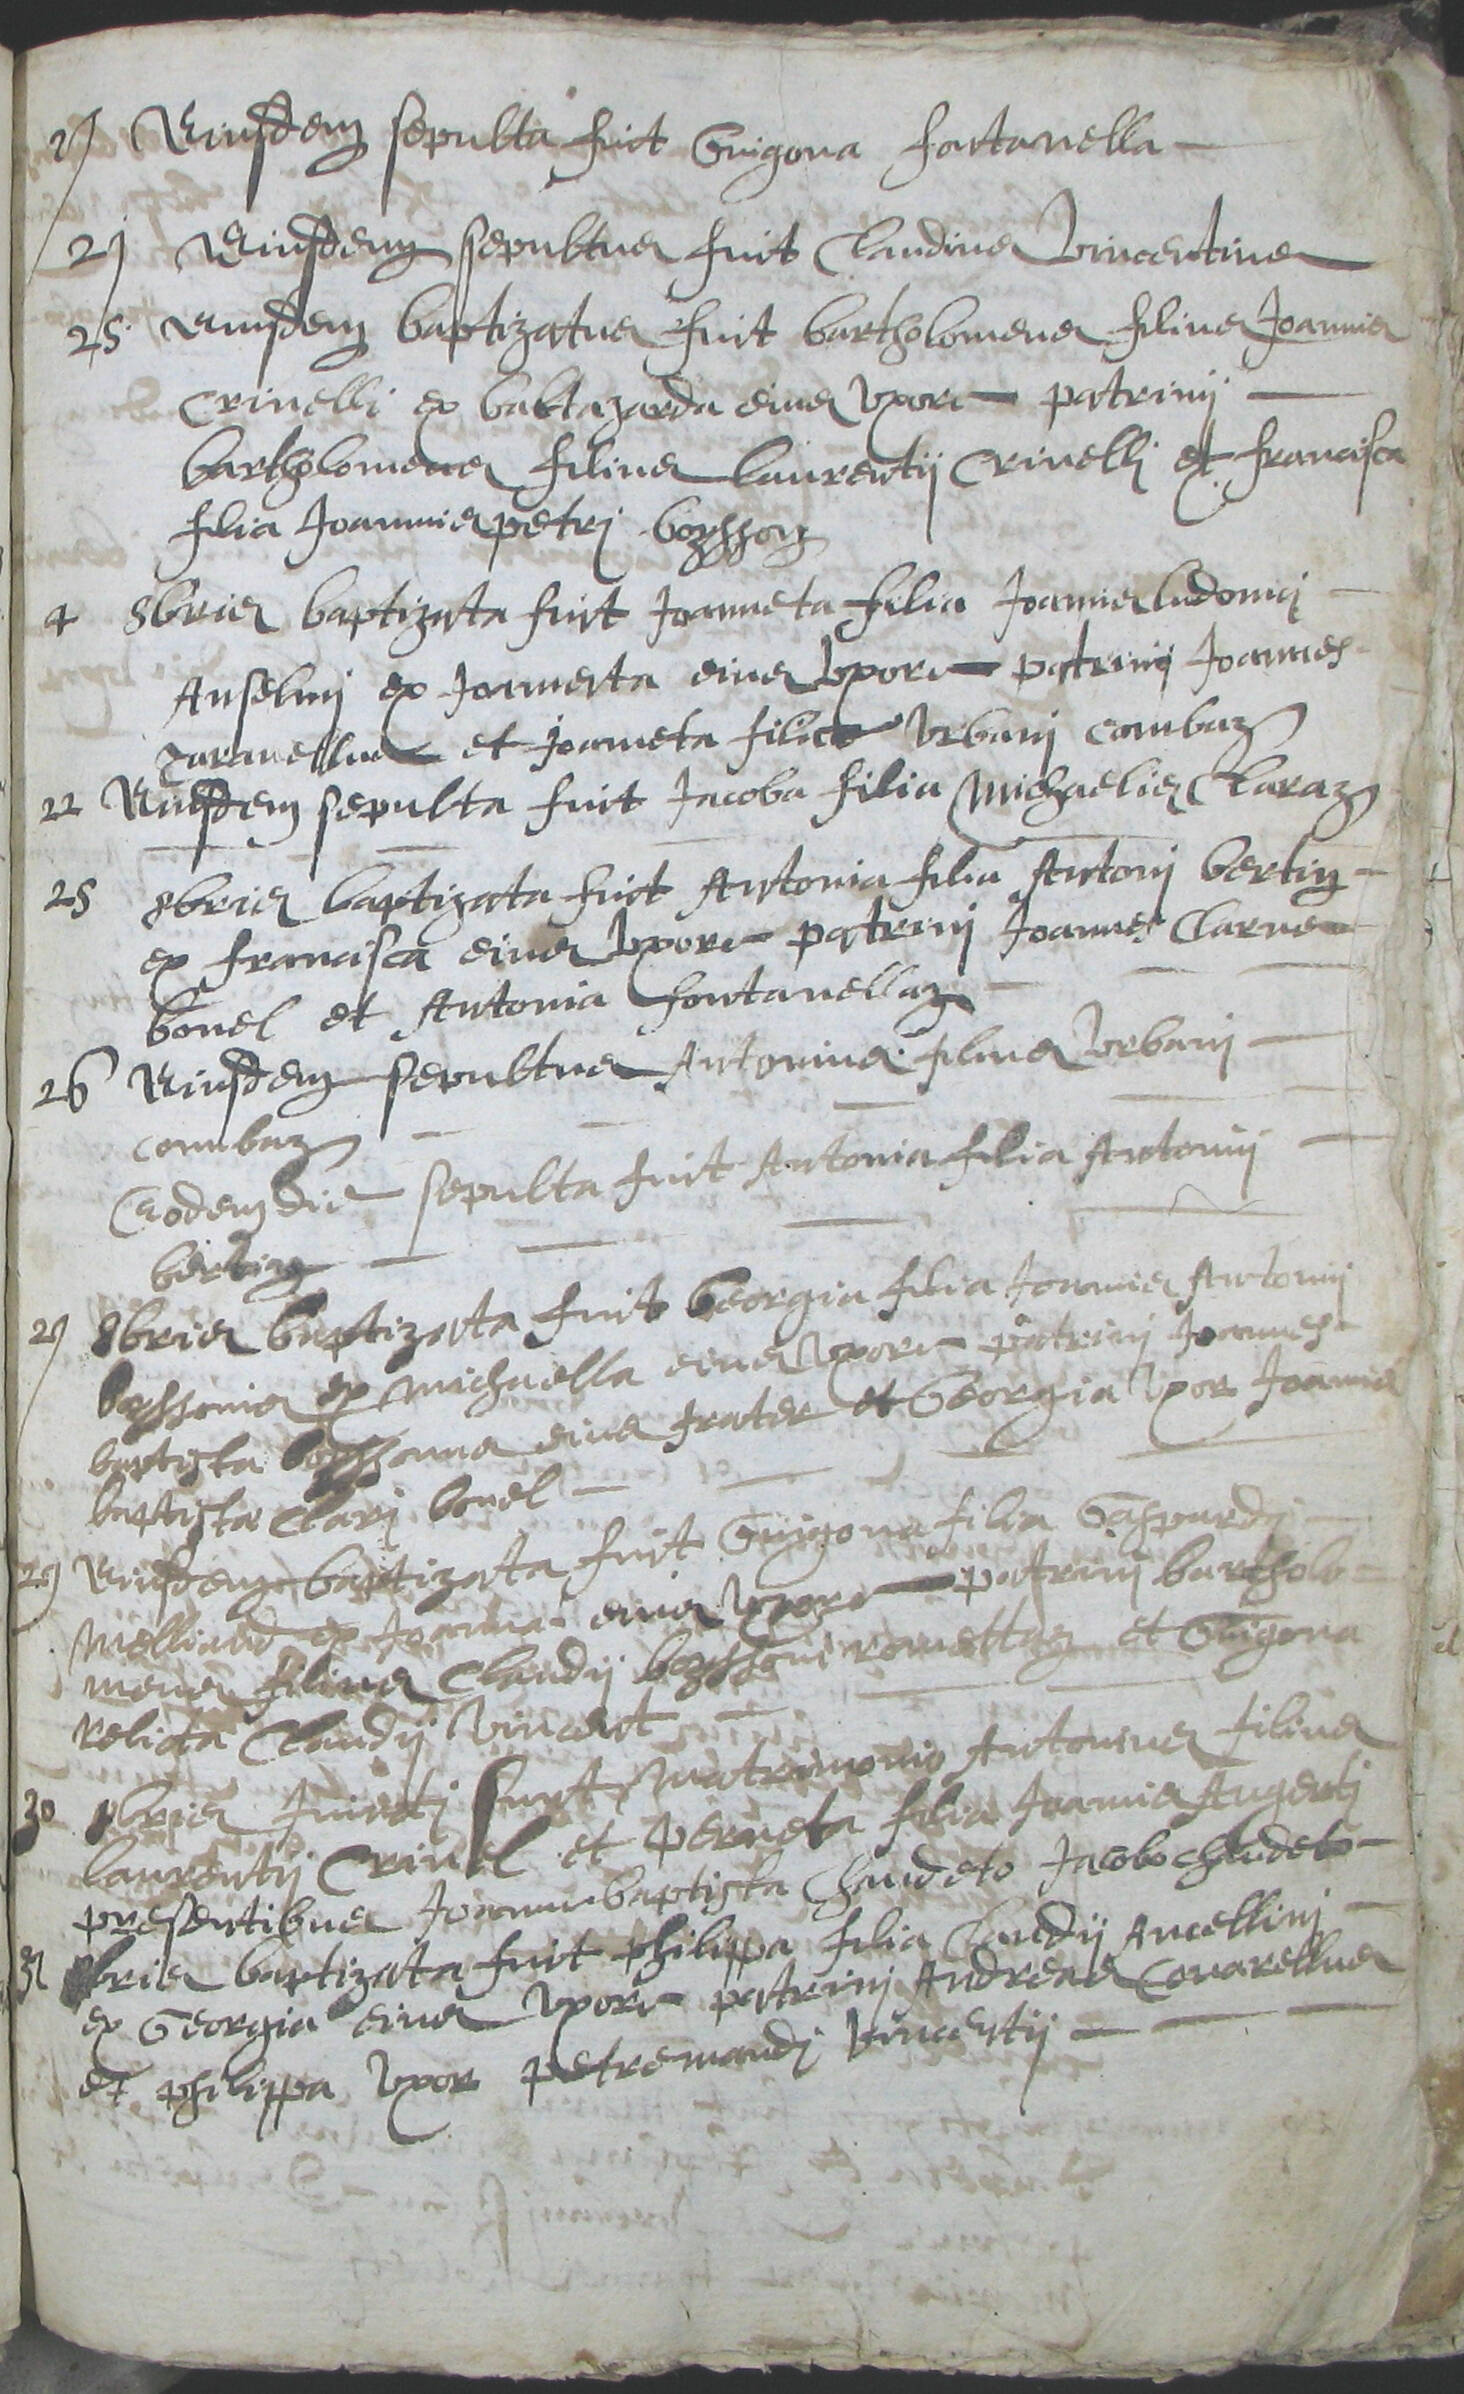 27 Eiusdem sepulta fuit Guigona fontanella
27 Eiusdem sepultus fuit Claudius Vincentius
28 Eiusdem baptizatus fuit bartholomeus filius Joannis
Crinelli ex baltazarda eius uxore patrinj
bartholomeus filius laurentij Crinellj et francisca
filia Joannis petrj bozsson
4 8bris baptizata fuit Joanneta filia Joannis ludovicj
Anselmj ex Joanneta eius uxore patrinj Joannes
et Joanneta filia Urbanj combaz
22 Eiusdem sepulta fuit Jacoba filia Michaelis Claraz
25 8bris baptizata fuit Antonia filia Antonij bertin
ex francisca eius uxore patrinj Joannes Clarus
bonel et Antonia fontanellaz
26 Eiusdem sepultus Antonius filius Urbanj
combaz
Eodem die sepulta fuit Antonia filia Antonij
bertin
27 8bris baptizata fuit Georgia filia Joannis Antonij
bozssonis ex michaella eius uxore patrinj Joannes
baptista bozssonus eius frater et Georgia uxor Joannis
baptistæ Clarj bonel
29 Eiusdem baptizata fuit Guigona filia Gaspardj
Melliand ex Joanna eius uxore patrinj bartholo=
meus filius Claudij bozssonis et Guigona
relicta Claudij Vincent
30 8bris Junctj sunt Matrimonio Antonius filius
laurentij Crinel et perneta filia Joannis Augertj
presentibus Joanne baptista Chaudeto Jacobo chaudeto
31 8bris baptizata fuit philippa filia Claudij Ancellinj
ex Georgia eius uxore patrinj Andreas Covarellus
et philippa uxor petremandj Vincentij